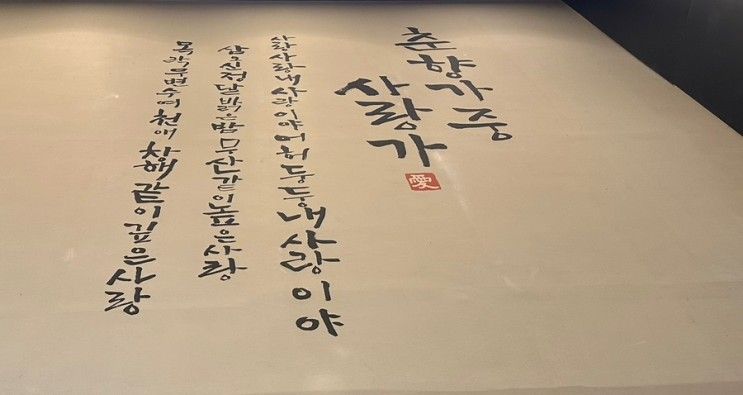 춘향가 중
사랑가
愛
사랑사랑내사랑이야 어허둥둥 내사랑이야
삼오신정달밝은밤 무산같이높은사랑
목락무변수여천애 창해같이깊은사랑